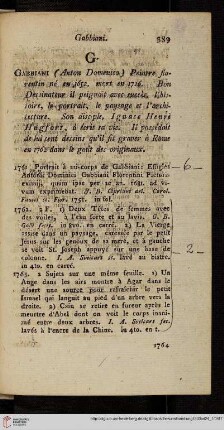 Gabbiani.
589
G.
GABBIANI (Anton Domenico) Peintre flo-
rentin né en 1652. mort en 1726. Bon
Dessinateur il peignoit avec succès, l'his-
toire, le portrait, le paysage et l'archi-
tecture. Son disciple, Ignace Henri
Hugfort, a écrit sa vie. Il possédoit
de lui cent dessins qu'il fit graver à Rome
en 1762 dans le goût des originaux.
1761. Portrait à mi-corps de Gabbiani: Effigies
Antonii Dominici Gabbiani Florentini Pictoris
eximii, quam ipse
in fol.
1762. 2 F. 1) Deux Têtes de femmes avec
des voiles, à l'eau forte et au lavis.
in 4to. en carré. 2) La Vierge
assise dans un paysage, caressée par le petit
Jésus sur les genoux de sa mere, et à gauche
se voit St. Joseph appuyé sur une base de
colonne. I. A. lavé au bistre,
in 4to. en carré.
1763. 2 Sujets sur une même feuille. 1) Un
Ange dans les airs montre à Agar dans le
désert une source pour rafraichir le petit
Ismael qui languit au pied d'un arbre vers la
droite. 2) Cain se retire en fureur après le
meurtre d'Abel dont on voit le corps inani-
mé entre deux arbres. I. A.
lavés à l'encre de la Chine. in 4to. en t.
1764
6
2